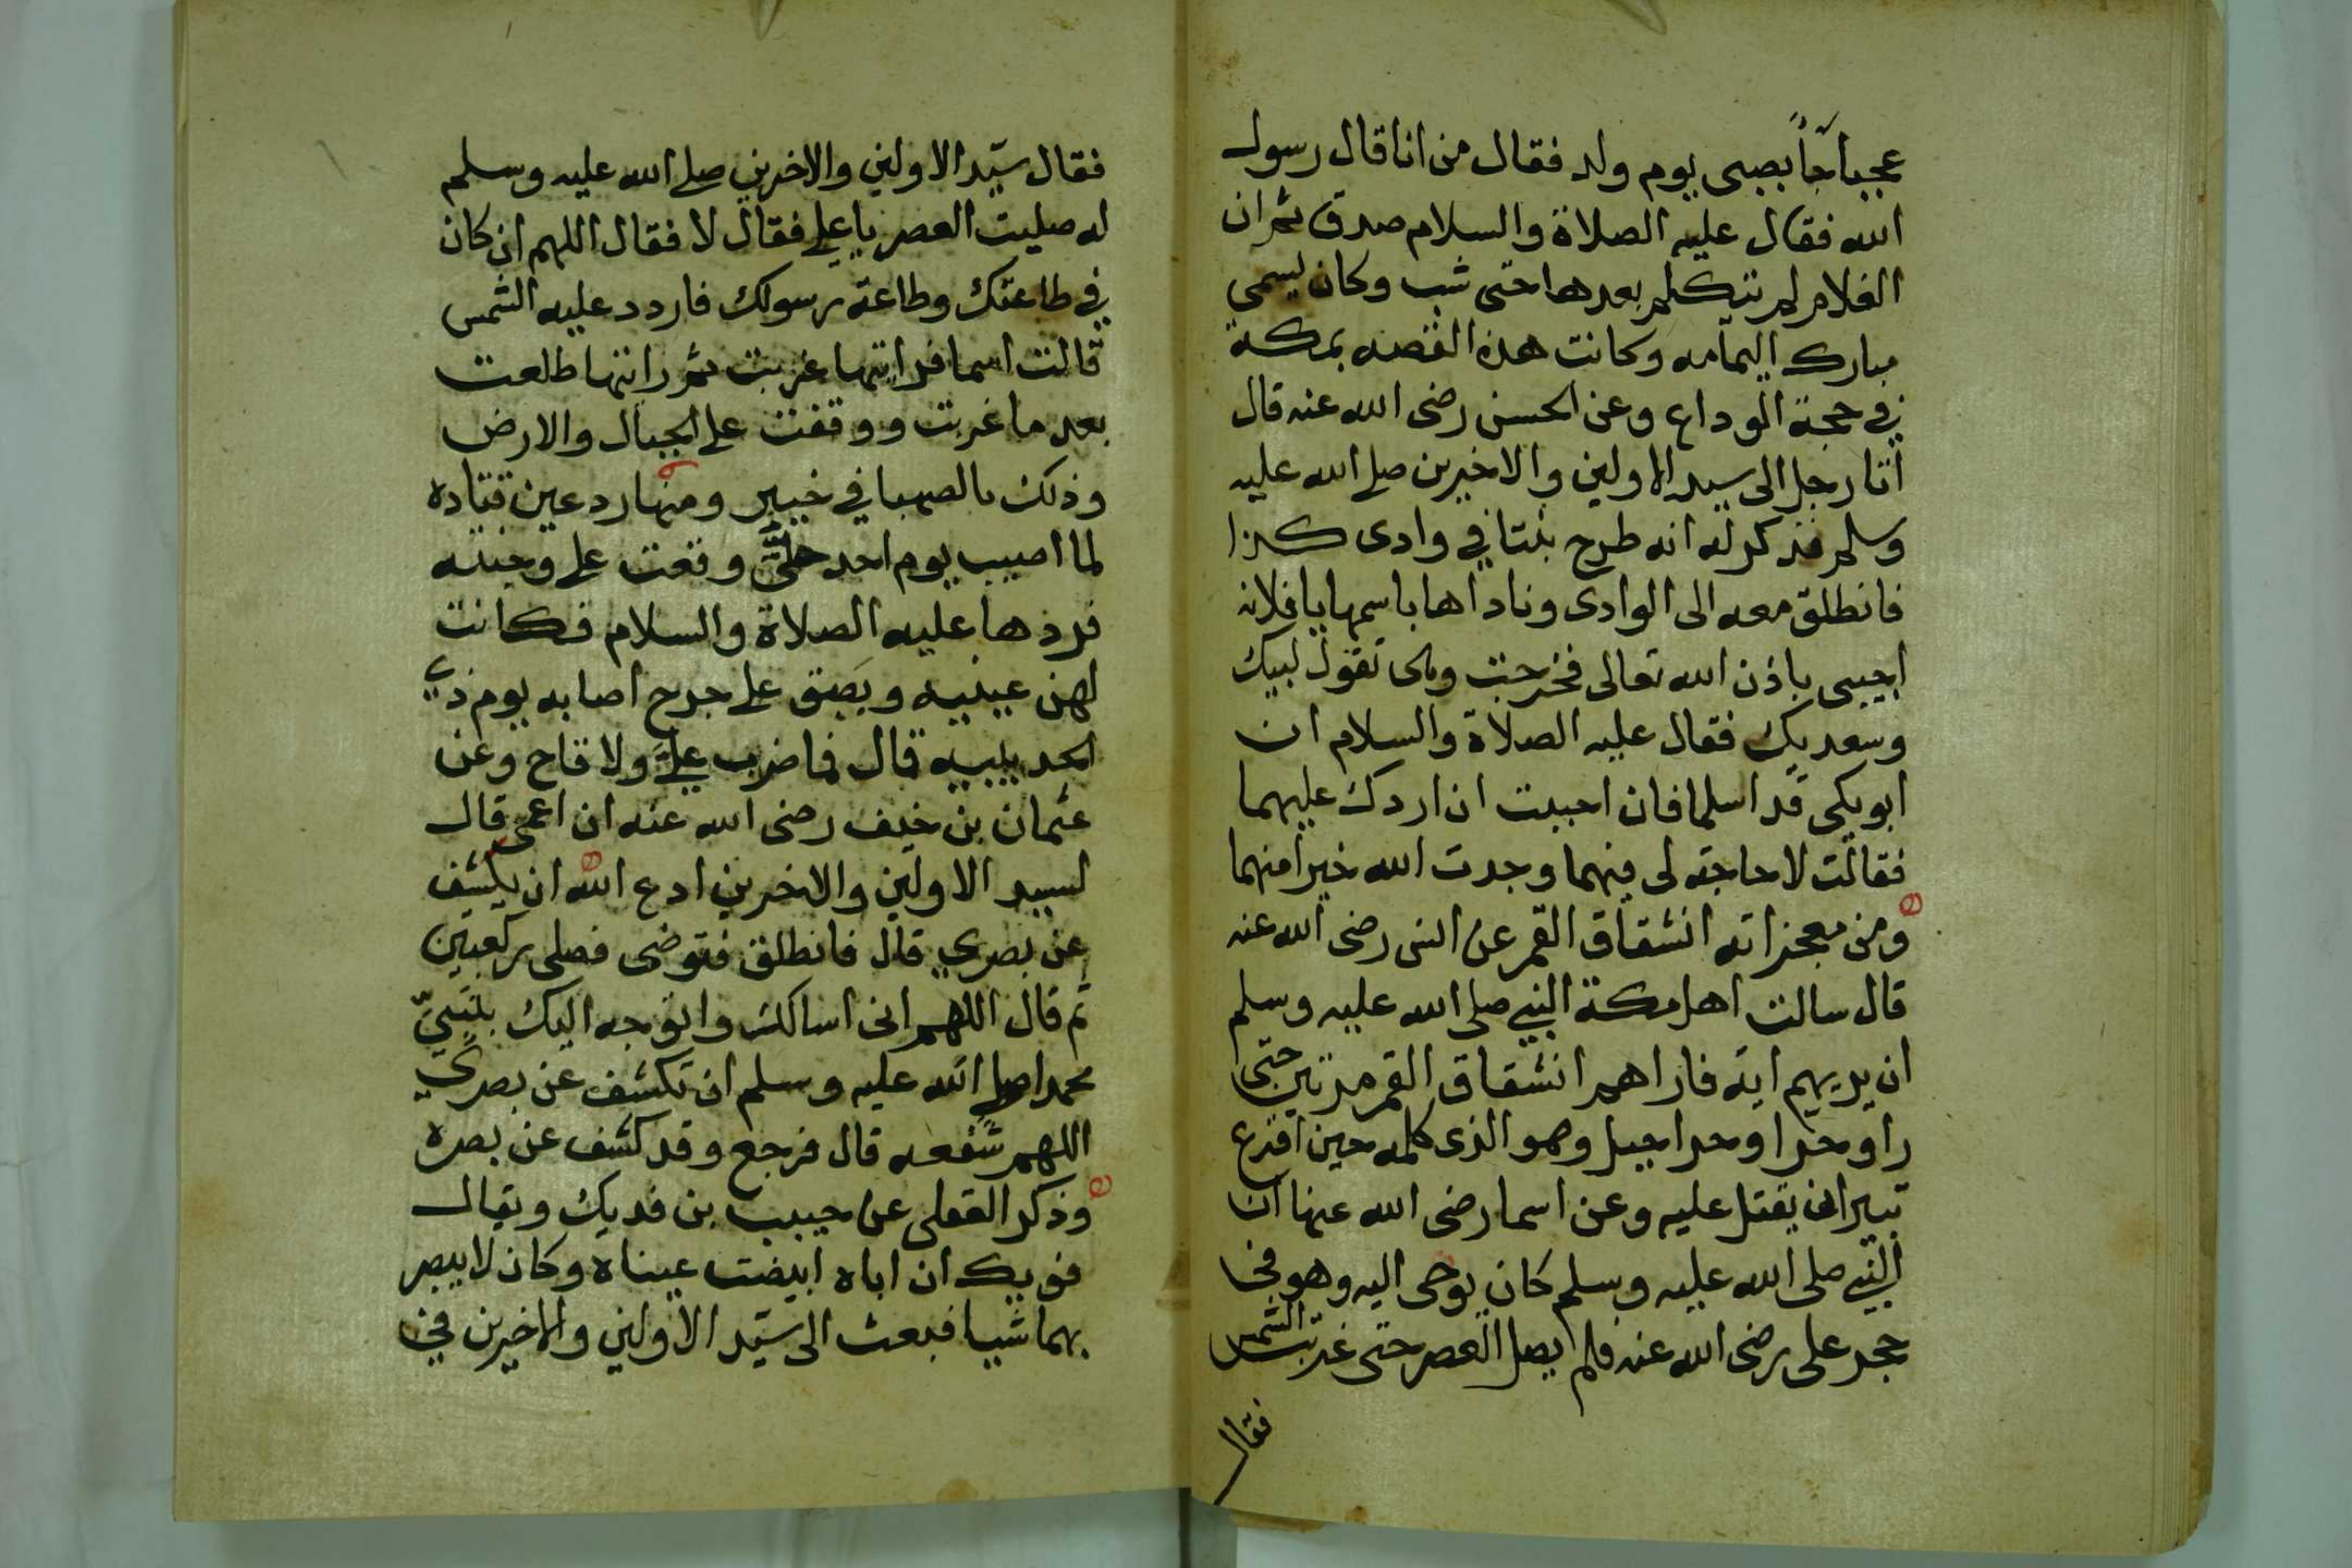 عجبا جأ بصبى يوم ولد فقال من انا قال رسول
الله فقال عليه الصلاة والسلام صدق ثم ان
الغلام لم تتكلم بعدها حتى شب وكان يسمى
مبارك اليمامه وكانت هذه القصه بمكة
في حجة الوداع وعن الحسن رضى الله عنه قال
أتا رجل الى سيد الاولين والاخيرين صلى الله عليه
وسلم فذكر له انه طرح بنتا في وادى كذا
فانطلق معه الى الوادى وناداها باسمها يا فلانه
اجيبى باذن الله تعالى فخرجت وهى تقول لبيك
وسعديك فقال عليه الصلاة والسلام ان
ابويكى قد اسلما فان احببت ان اردك عليهما
فقالت لا حاجة لى فيهما وجدت الله خيرا منهما
ومن معجزاته انشقاق القمر عن انس رضى الله عنه
قال سالت اهل مكة النبي صلى الله عليه وسلم
ان يريهم اية فاراهم انشقاق القمر مرتين حتى
راو حرا وحرا جبل وهو الذى كلمه حين افزع
تبير ان يقتل عليه وعن اسما رضى الله عنها ان
النبي صلى الله عليه وسلم كان يوحى اليه وهو في
حجر على رضى الله عنه فلم يصل العصر حتى غربت الشمس
فقال
فقال سيّد الاولين والاخرين صلى الله عليه وسلم
له صليت العصر يا على فقال لا فقال اللهم ان كان
في طاعتك وطاعة رسولك فاردد عليه الشمس
قالت اسما فرايتها غربت ثم رايتها طلعت
بعد ما غربت ووقفت على الجبال والارض
وذلك بالصهبا في خيبر ومنها رد عين قتاده
لما اصيب يوم احد حتى وقعت على وجنته
فردها عليه الصلاة والسلام فكانت
عينيه وبصق على جرح اصابه يوم ذي
قال فما ضرب علىّ ولا قاح وعن
عثمان بن خيف رضى الله عنه ان اعمى قال
لسيد الاولين والاخرين ادع الله ان يكشف
عن بصري قال فانطلق فتوضى فصلى ركعتين
ثم قال اللهم انى اسالك واتوجه اليك بنبيّ
محمدا صلى الله عليه وسلم ان تكشف عن بصري
اللهم شفعه قال فرجع وقد كشف عن بصره
وذكر العقلى عن حبيب بن فديك ويقال
فويك ان اباه ابيضت عيناه وكان لا يبصر
بهما شيا فبعث الى سيّد الاولين والاخيرين في